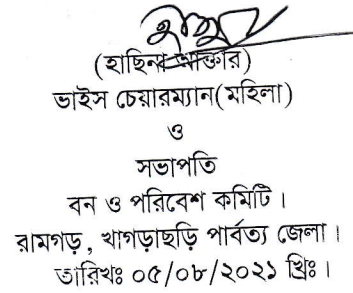 (হাছিনা আক্তার)
ভাইস চেয়ারম্যান(মহিলা)
ও
সভাপতি
বন ও পরিবেশ কমিটি ।
রামগড়, খাগড়াছড়ি পার্বত্য জেলা ।
তারিখঃ ০৫/০৮/২০২১ খ্রিঃ ।